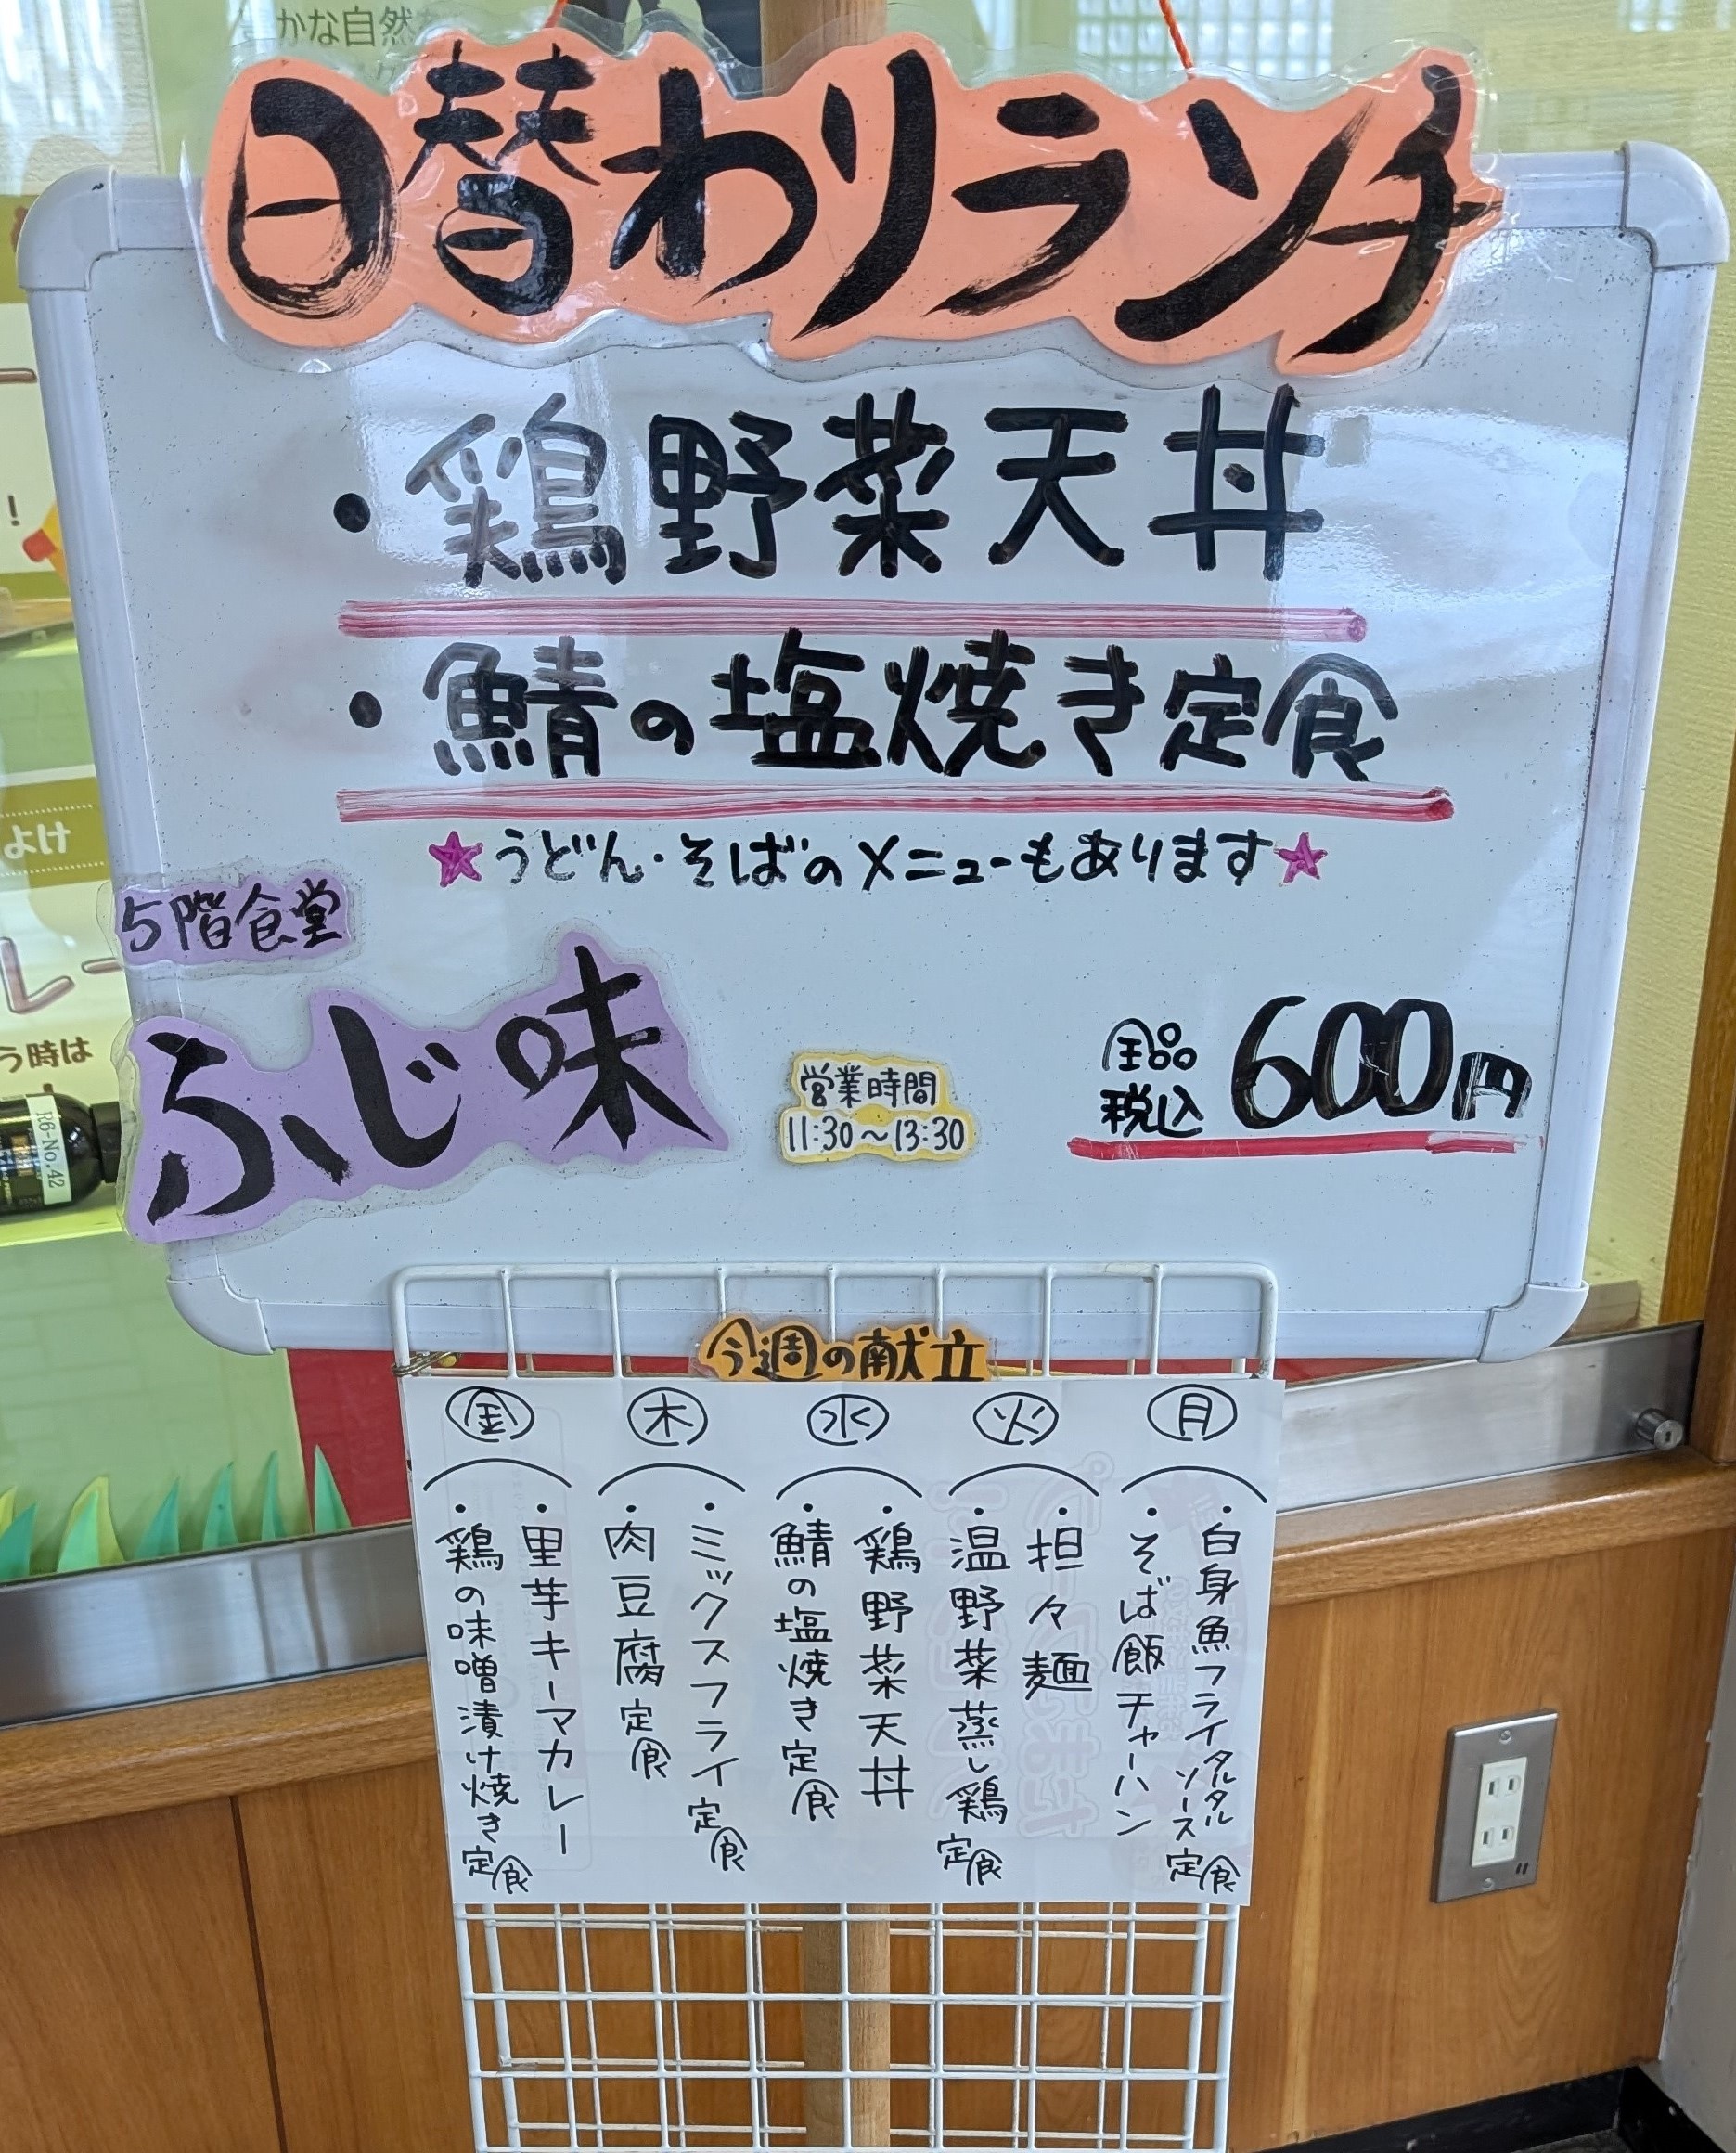 かな自然
日替わりランチ
・鶏野菜天丼
・鯖の塩焼き定食
★うどん・そばのメニューもあります★
5階食堂
ふじ味
営業時間
11:30〜13:30
全品
税込
600円
!
よけ
レー
う時は
R6-No.42
今週の献立
月
・白身魚フライタルタルソース定食
・そば飯チャーハン
火
・担々麺
・温野菜蒸し鶏定食
水
・鶏野菜天丼
・鯖の塩焼き定食
木
・ミックスフライ定食
・肉豆腐定食
金
・里芋キーマカレー
・鶏の味噌漬け焼き定食